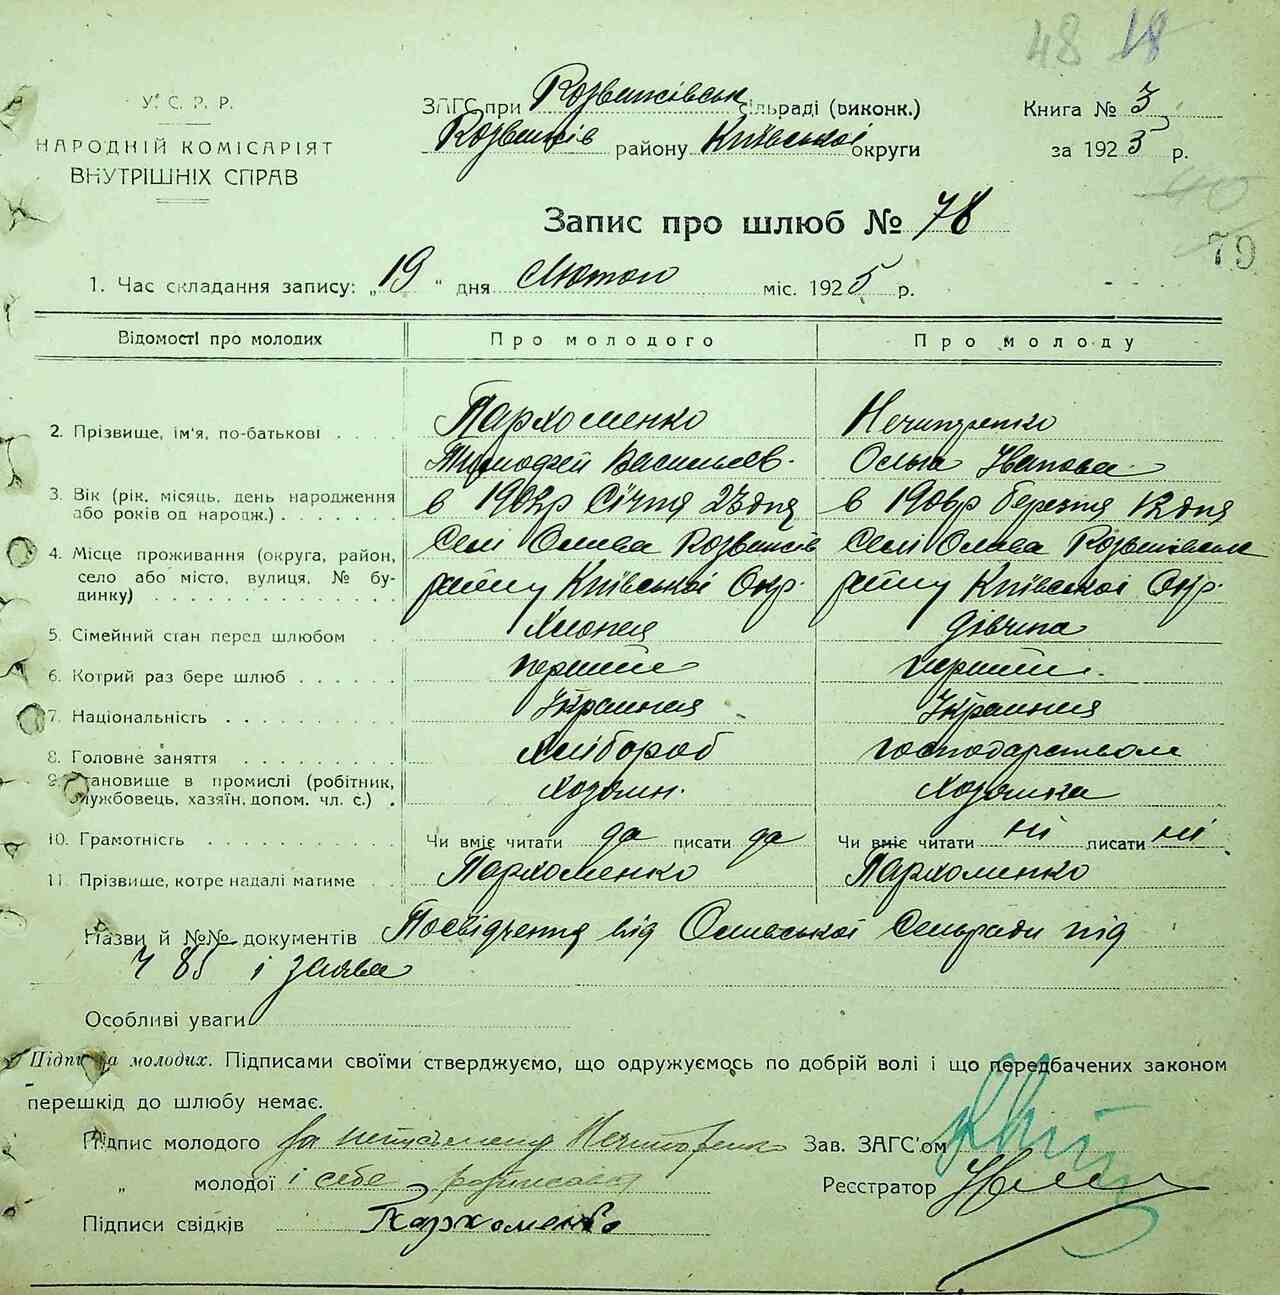 48 18
У. С. Р. Р.
НАРОДНІЙ КОМІСАРІЯТ
ВНУТРІШНІХ СПРАВ
ЗАГС при Розважівськ сільраді (виконк.)
Розважів району Київської округи
Книга № 3
за 1925 р.
40
79
Запис про шлюб № 78
1. Час складання запису: „19" дня Лютого міс. 1925 р.
Відомості про молодих Про молодого Про молоду
2. Прізвище, ім'я, по-батькові Пархоменко Нечипоренко
Тимофей Васильев. Ольга Иванова
3. Вік (рік, місяць, день народження або років од народж.) в 1902р Січня 23 дня в 1906р березня 12 дня
4. Місце проживання (округа, район, село або місто, вулиця, № будинку) Селі Олива Розважів Селі Олива Розважівськ
району Київської Окр. району Київської Окр.
5. Сімейний стан перед шлюбом Хлопця дівчина
6. Котрий раз бере шлюб перший перший.
7. Національність Українця Українця
8. Головне заняття хлібороб господарством
9. Становище в промислі (робітник, службовець, хазяїн, допом. чл. с.) Хозяин. Хозяика
10. Грамотність Чи вміє читати да писати да Чи вміє читати ні писати ні
11. Прізвище, котре надалі матиме Пархоменко Пархоменко
Назви й №№ документів Посвідчення від Оливської Сельради під
ч 85 і заява
Особливі уваги
Підписи молодих. Підписами своїми стверджуємо, що одружуємось по добрій волі і що передбачених законом
перешкід до шлюбу немає.
Підпис молодого За неписьмену Нечипоренко Зав. ЗАГС'ом
„ молодої і себе розписався Реєстратор
Підписи свідків Пархоменко